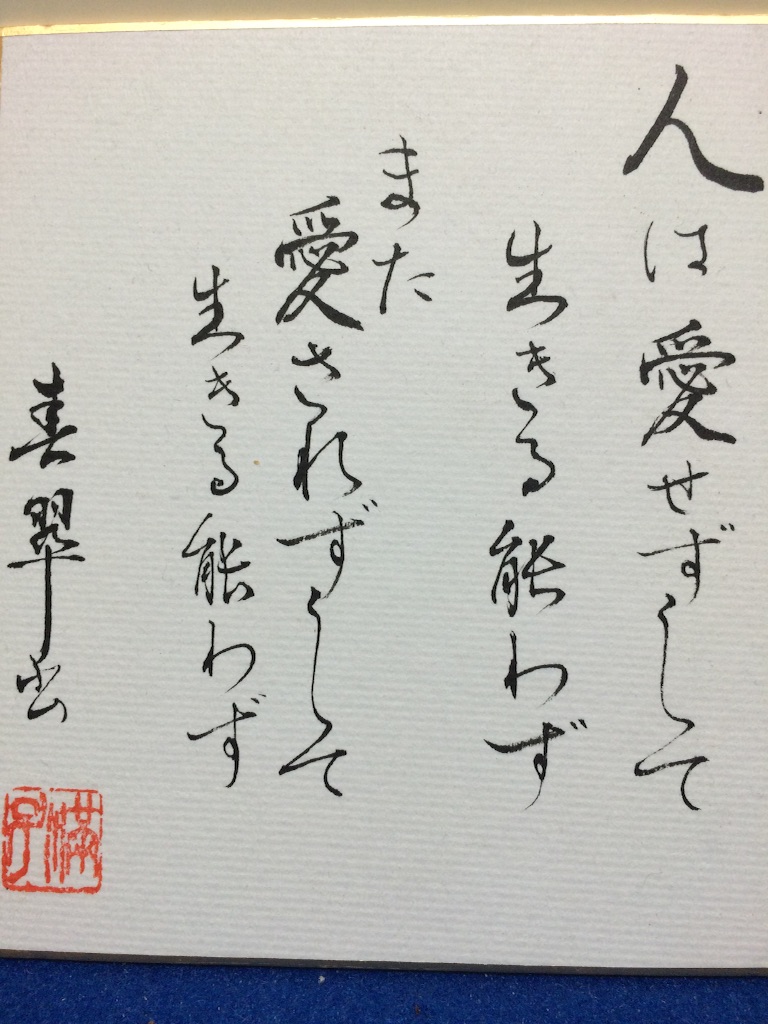 人は愛せずして
生きる能わず
また
愛されずして
生きる能わず
春翠書
満